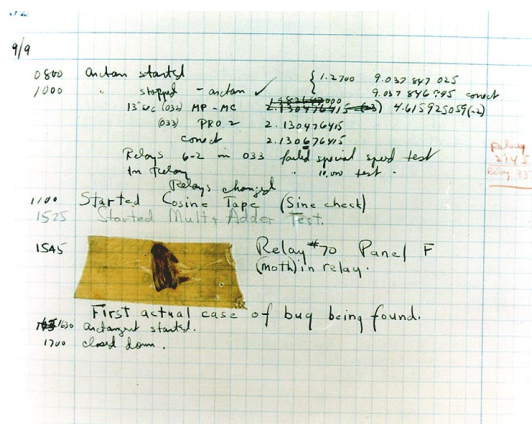 9/9
0800 Antan started { 1.2700 9.037 847 025
1000 " stopped - antan ✓ 9.037 846 995 correct
13"uc (032) MP - MC 2.130476415 (-3) 4.615925059(-2)
(033) PRO 2 2.130476415
correct 2.130676415
Relays 6-2 in 033 failed special speed test
In Relay " 11,000 test .
Relays changed
Relay
2145
Relay 33
1100 Started Cosine Tape (Sine check)
1525 Started Mult+ Adder Test.
1545 Relay #70 Panel F
(moth) in relay.
First actual case of bug being found.
1630 antangent started.
1700 closed down.